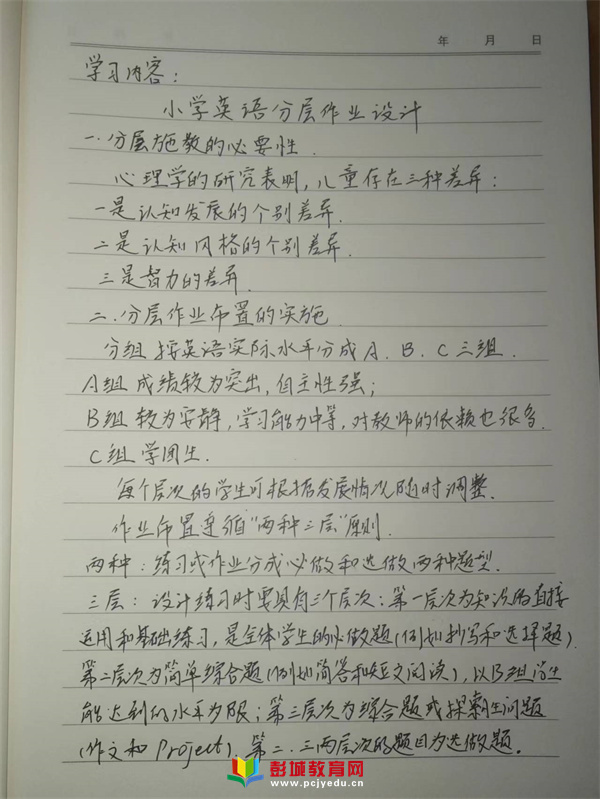 年 月 日
学习内容：
小学英语分层作业设计
一.分层施教的必要性.
心理学的研究表明,儿童存在三种差异：
一是认知发展的个别差异.
二是认知风格的个别差异.
三是智力的差异.
二.分层作业布置的实施.
分组 按英语实际水平分成A.B.C三组.
A组 成绩较为突出,自主性强；
B组 较为安静,学习能力中等,对教师的依赖也很多.
C组 学困生.
每个层次的学生可根据发展情况随时调整.
作业布置遵循"两种三层"原则.
两种：练习或作业分成必做和选做两种题型.
三层：设计练习时要具有三个层次：第一层次为知识的直接
运用和基础练习,是全体学生的必做题(例如抄写和选择题).
第二层次为简单综合题(例如简答和短文阅读),以B组学生
能达到的水平为限；第三层次为综合题或探索性问题
(作文和Project).第二.三两层次的题目为选做题.
彭城教育网
www.pcjyedu.cn